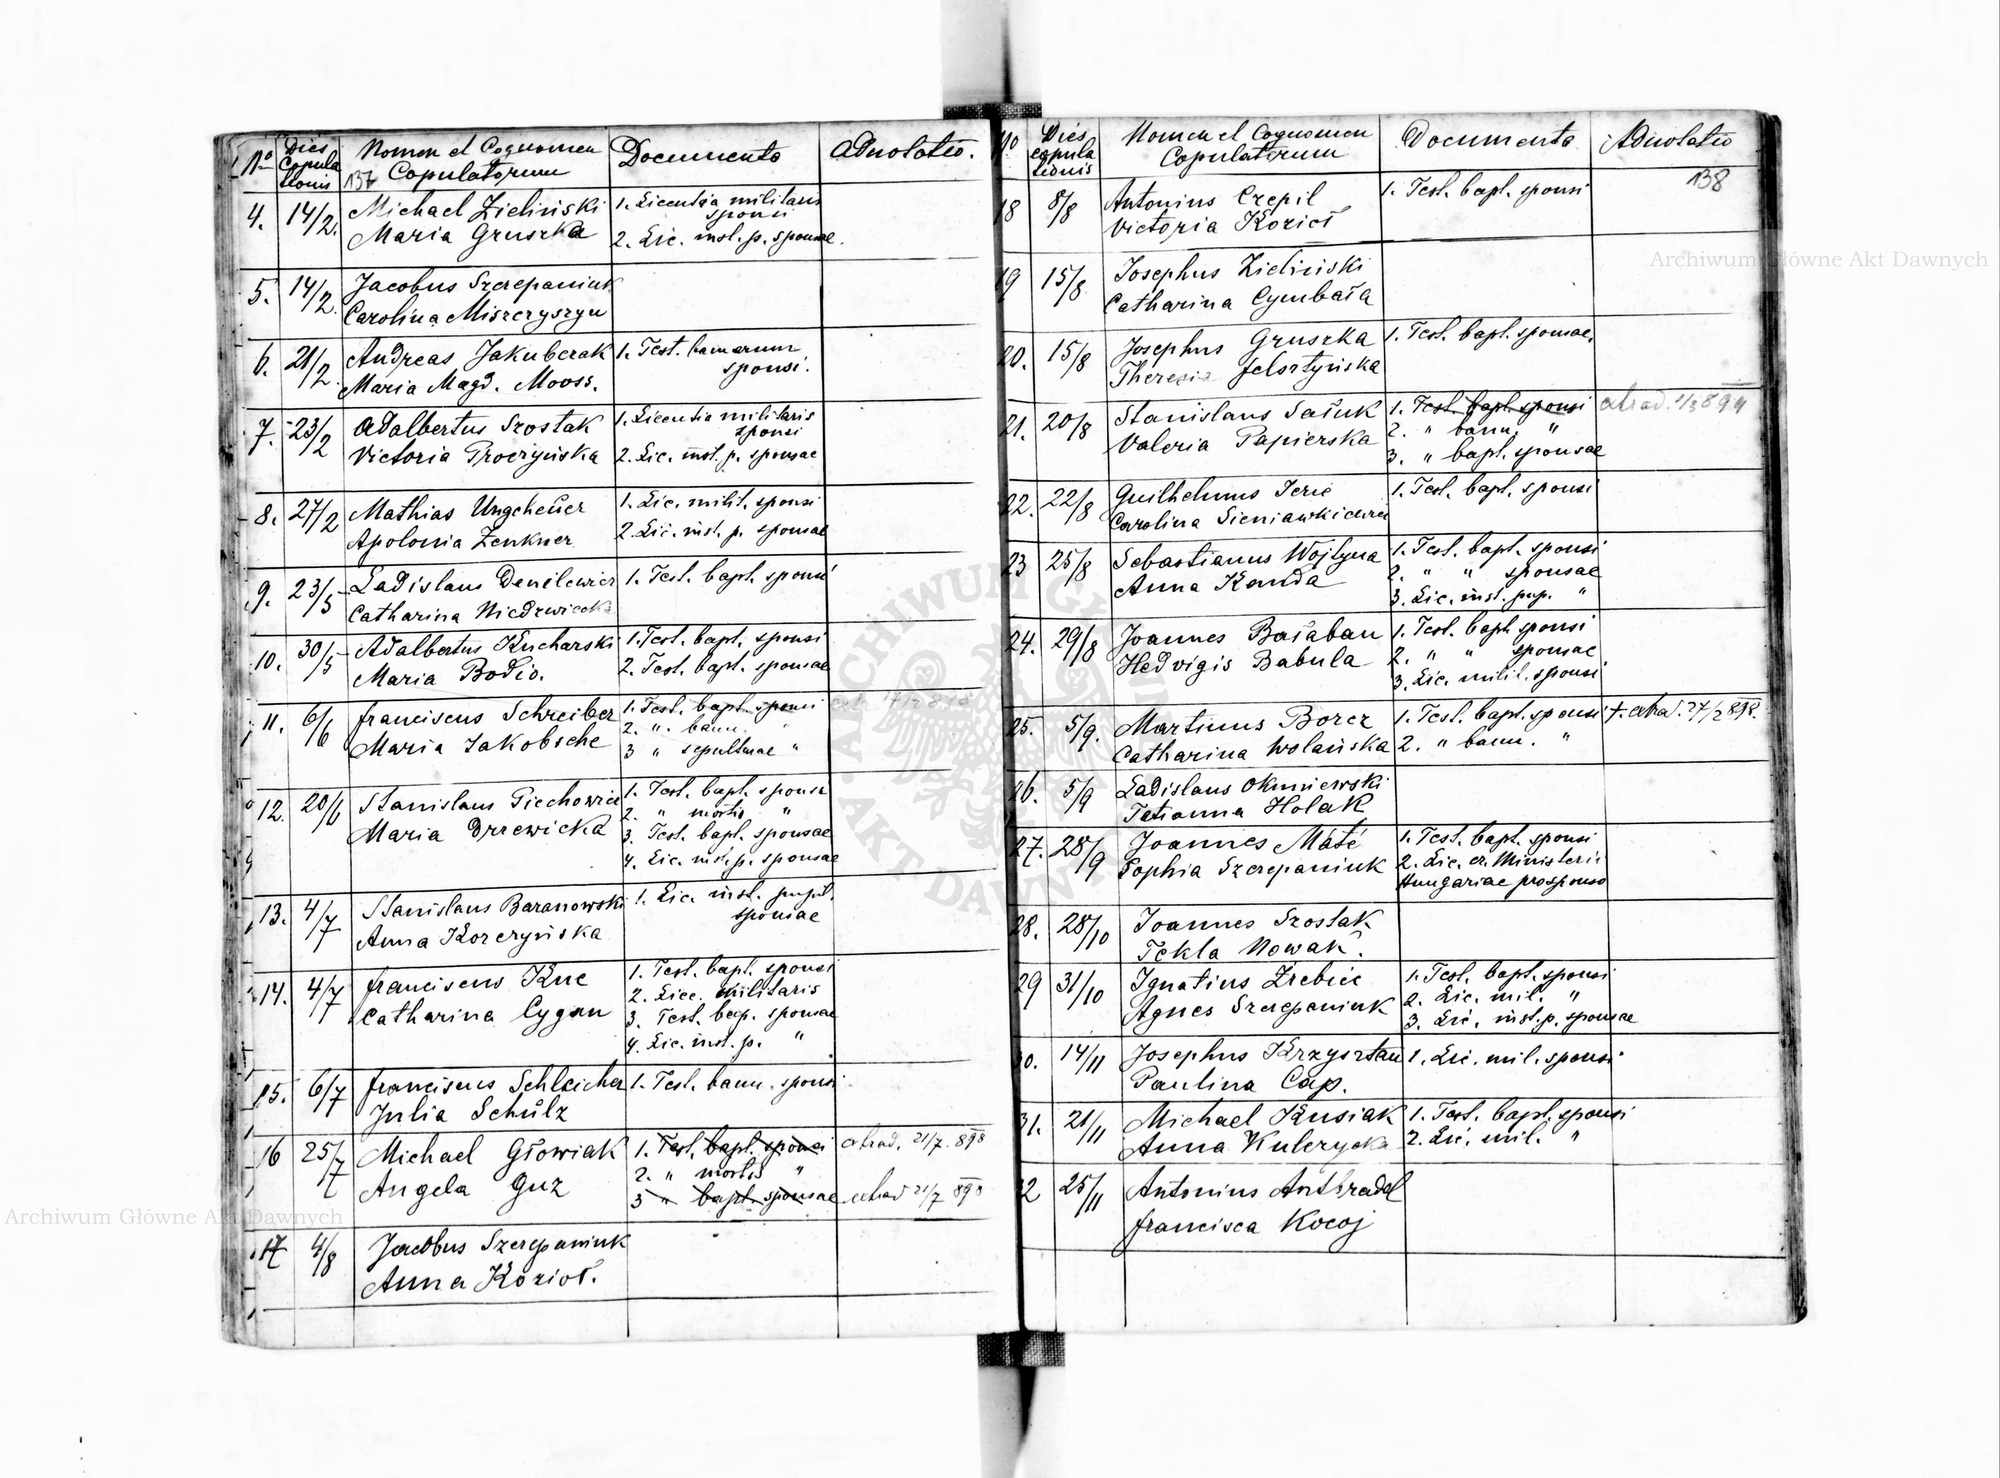 No Dies Copulationis Nomen et Cognomen Copulatorum Documenta Adnotatio.
137
4. 14/2. Michael Zieliński 1. Licentia militaris
sponsi
Maria Gruszka 2. Lic. inst. p. sponsae.
5. 14/2. Jacobus Szczepaniuk
Carolina Miszczyszyn
6. 21/2. Andreas Jakubczak 1. Test. bannorum
Maria Magd. Mooss. sponsi.
7. 23/2 Adalbertus Szostak 1. Licentia militaris
sponsi
Victoria Troczyńska 2. Lic. inst. p. sponsae
8. 27/2 Mathias Ungeheuer 1. Lic. milit. sponsi
Apolonia Zenkner 2. Lic. inst. p. sponsae
9. 23/5 Ladislaus Denilewicz 1. Test. bapt. sponsi
Catharina Niedzwiecka
10. 30/5 Adalbertus Kucharski 1. Test. bapt. sponsi
Maria Bodio. 2. Test. bapt. sponsae
11. 6/6 Franciscus Schreiber 1. Test. bapt. sponsi
2. " bann. "
Maria Jakobsche 3 " sepulturae "
12. 20/6 Stanislaus Piechowicz 1. Test. bapt. sponsi
2. " mortis "
Maria Drzewicka 3. Test. bapt. sponsae
4. Lic. inst. p. sponsae
13. 4/7 Stanislaus Baranowski 1. Lic. inst. pupil.
sponsae
Anna Korczyńska
14. 4/7 Franciscus Kuc 1. Test. bapt. sponsi
2. Licc. militaris
Catharina Cygan 3. Test. bap. sponsae
4. Lic. inst. p. "
15. 6/7 Franciscus Schleicher 1. Test. bann. sponsi
Julia Schulz
16 25/7 Michael Głowiak 1. Test. bapt. sponsi extrad. 21/7. 898
2. " mortis "
Angela Guz 3 " bapt. sponsae extrad 21/7 898
17 4/8 Jacobus Szczepaniuk
Anna Kozioł.
No Dies copulationis Nomen et Cognomen Copulatorum Documenta Adnotatio
138
18 8/8 Antonius Czepil 1. Test. bapt. sponsi
Victoria Kozioł
19 15/8 Josephus Zieliński
Catharina Cymbała
20. 15/8 Josephus Gruszka 1. Test. bapt. sponsae.
Theresia
21. 20/8 Stanislaus Sałuk 1. Test. bapt. sponsi
2. " bann. "
Valeria Papierska 3. " bapt. sponsae
22. 22/8 Guilhelmus Jerie 1. Test. bapt. sponsi
Carolina Sieniawkiewicz
23 25/8 Sebastianus Wojtyna 1. Test. bapt. sponsi
2. " " sponsae
Anna Kanda 3. Lic. inst. pup. "
24. 29/8 Joannes Bałaban 1. Test. bapt. sponsi
2. " " sponsae
Hedvigis Babula 3. Lic. milit. sponsi
25. 5/9. Martinus Borcz 1. Test. bapt. sponsi extrad. 27/2 898.
Catharina Wolańska 2. " bann. "
26. 5/9 Ladislaus Okniewski
Tatianna Holak
27. 28/9 Joannes Máté 1. Test. bapt. sponsi
Sophia Szczepaniuk 2. Lic. ex. Ministerii
Hungariae pro sponso
28. 28/10 Joannes Szostak
Tekla Nowak.
29 31/10 Ignatius Źrebiec 1. Test. bapt. sponsi
2. Lic. mil. "
Agnes Szczepaniuk 3. Lic. inst. p. sponsae
30. 14/11 Josephus Krzysztan 1. Lic. mil. sponsi
Paulina Cap.
31. 21/11 Michael Kusiak 1. Test. bapt. sponsi
Anna Kulczycka 2. Lic. mil. "
32 25/11 Antonius
Francisca Kocoj
Archiwum Główne Akt Dawnych
Archiwum Główne Akt Dawnych